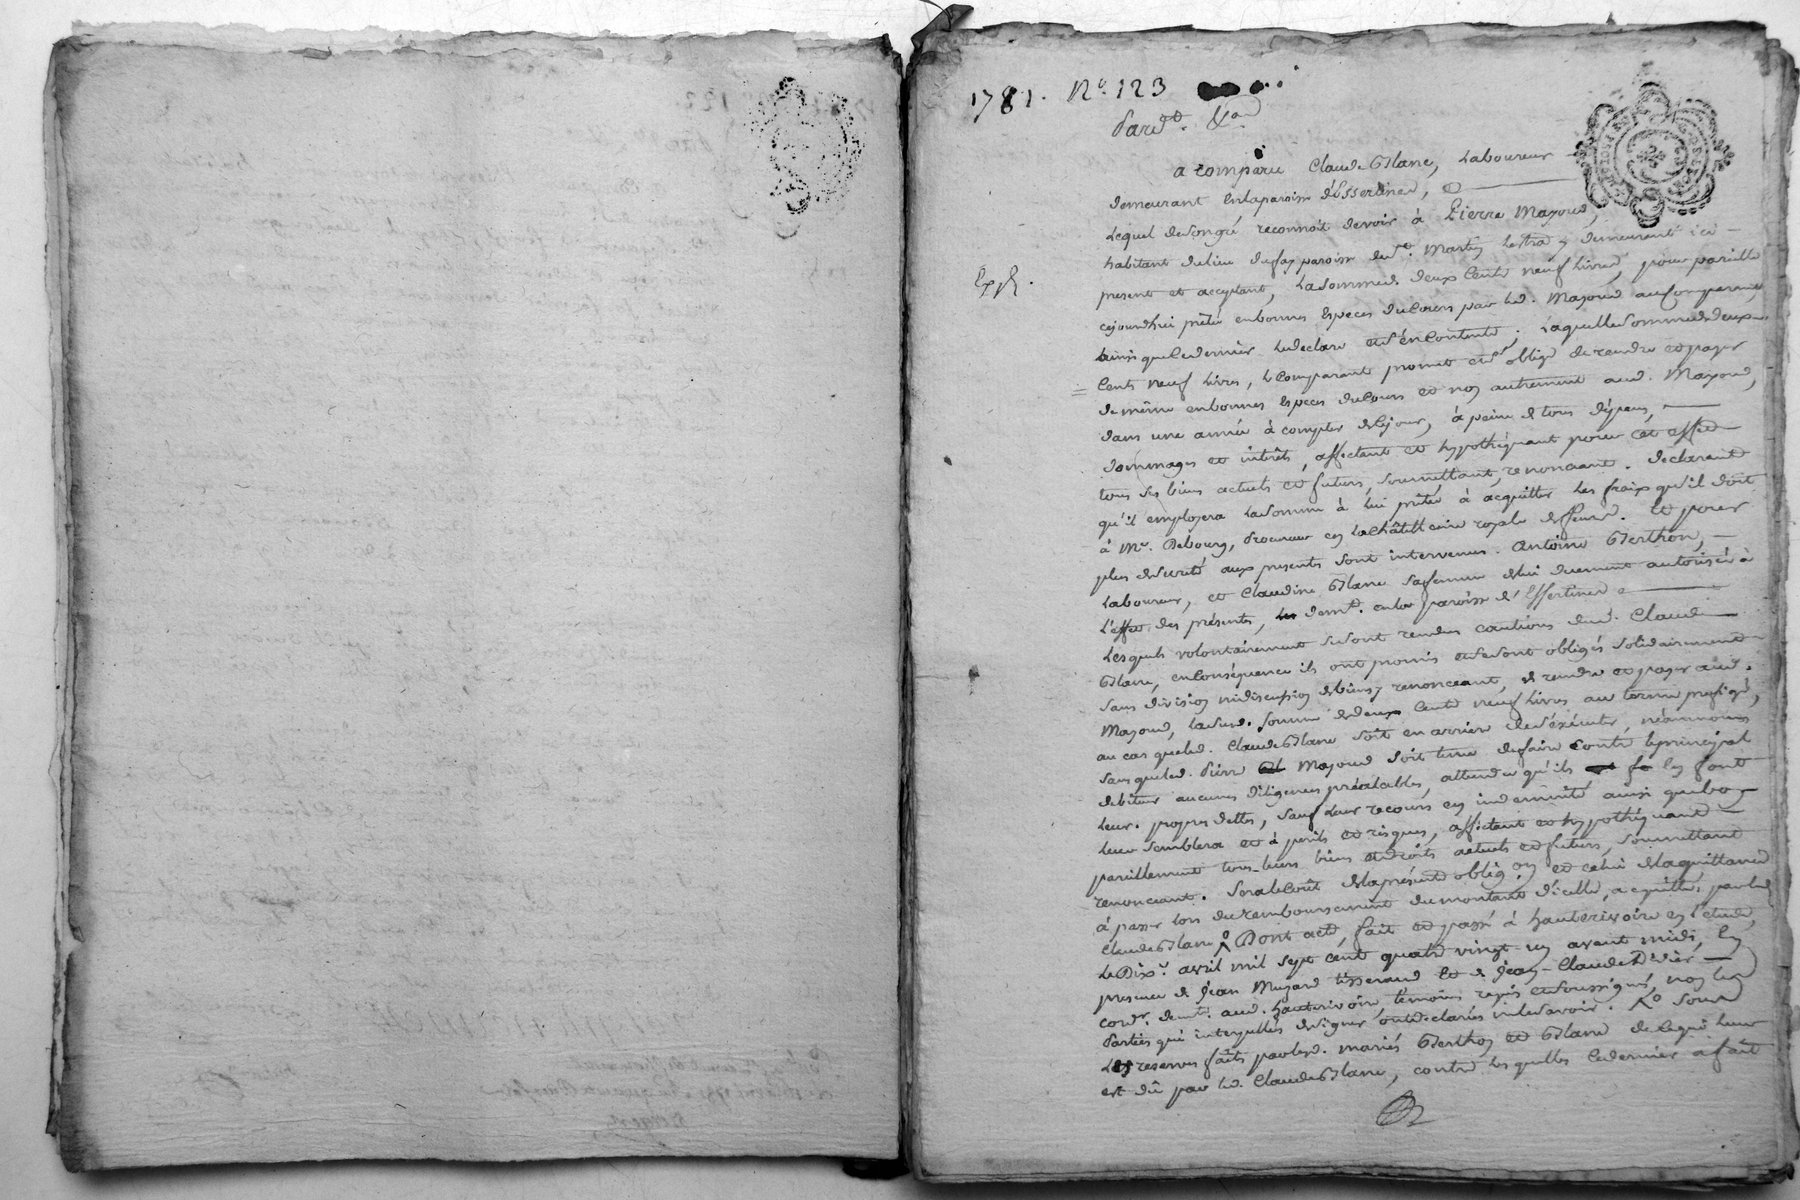 1781. No. 123
Pardt. &a
a comparu Claude Blanc, Laboureur
demeurant en la paroisse d'Essertines,
Lequel de son gré reconnoit devoir à Pierre Mayoud,
habitant du lieu du fay paroisse de St. Martin Lestra y demeurant ici
Expé.
present et acceptant, la somme de deux Cents neuf Livres, pour pareille
cejourdhui prêtée en bonnes Especes du Cours par led. Mayoud au Comparant,
ainsi que ce dernier le declare et s'en Contente; Laquelle somme de deux
Cents neuf Livres, le Comparant promet et s'oblige de rendre et payer
de même en bonnes Especes du Cours et non autrement aud. Mayoud,
dans une année à compter de ce jour, à peine de tous dépens,
dommages et intérêts, affectant et hypothéquant pour cet effet
tous ses biens actuels et futurs, soumettant, renonceant. Declarant
qu'il employera la somme à lui prêtée à acquitter les fraix qu'il doit
à Me. Debourg, Procureur en la châtellenie royale de feurs. Et pour
plus de sureté aux presentes sont intervenus Antoine Berthon,
Laboureur, et Claudine Blanc sa femme de lui duement autorisée à
L'effet des présentes, demt. en la paroisse d'Essertines
Lesquels volontairement se sont rendus cautions dud. Claude
Blanc, en Conséquence ils ont promis et se sont obligés solidairement
sans division ni discussion de biens y renonceant, de rendre et payer aud.
Mayoud, lasusd. somme de deux Cents neuf Livres au terme prefigé,
au cas que led. Claude Blanc soit en arriere de s'éxécuter, néanmoins
sans que led. Pierre Mayoud soit tenu de faire contre le principal
debiteur aucunes diligences préalables, attendu qu'ils en font
leur propre dette, sauf leur recours en indemnité ainsi que bon
leur semblera et à perils et risques, affectant et hypothéquant
pareillement tous leurs biens et droits actuels et futurs, soumettant
renonceant. Sera le Coût de la présente oblig.on et celui de la quittance
à passer lors du remboursement du montant d'icelle, acquitté par led
Claude Blanc. Dont acte, fait et passé à hauterivoire en l'étude,
Le Dix avril mil sept cent quatre vingt un avant midi, En
presence de Jean Mugard tisserand et de Jean-Claude Didier
cordr. demt. aud. hauterivoire, temoins requis et soussignés, non les
Parties qui interpellées de signer ont declarés ne le savoir. sous
Les reserves faites par lesd. mariés Berthon et Blanc de ce qui leur
est dû par led. Claude Blanc, contre lesquelles ce dernier a fait